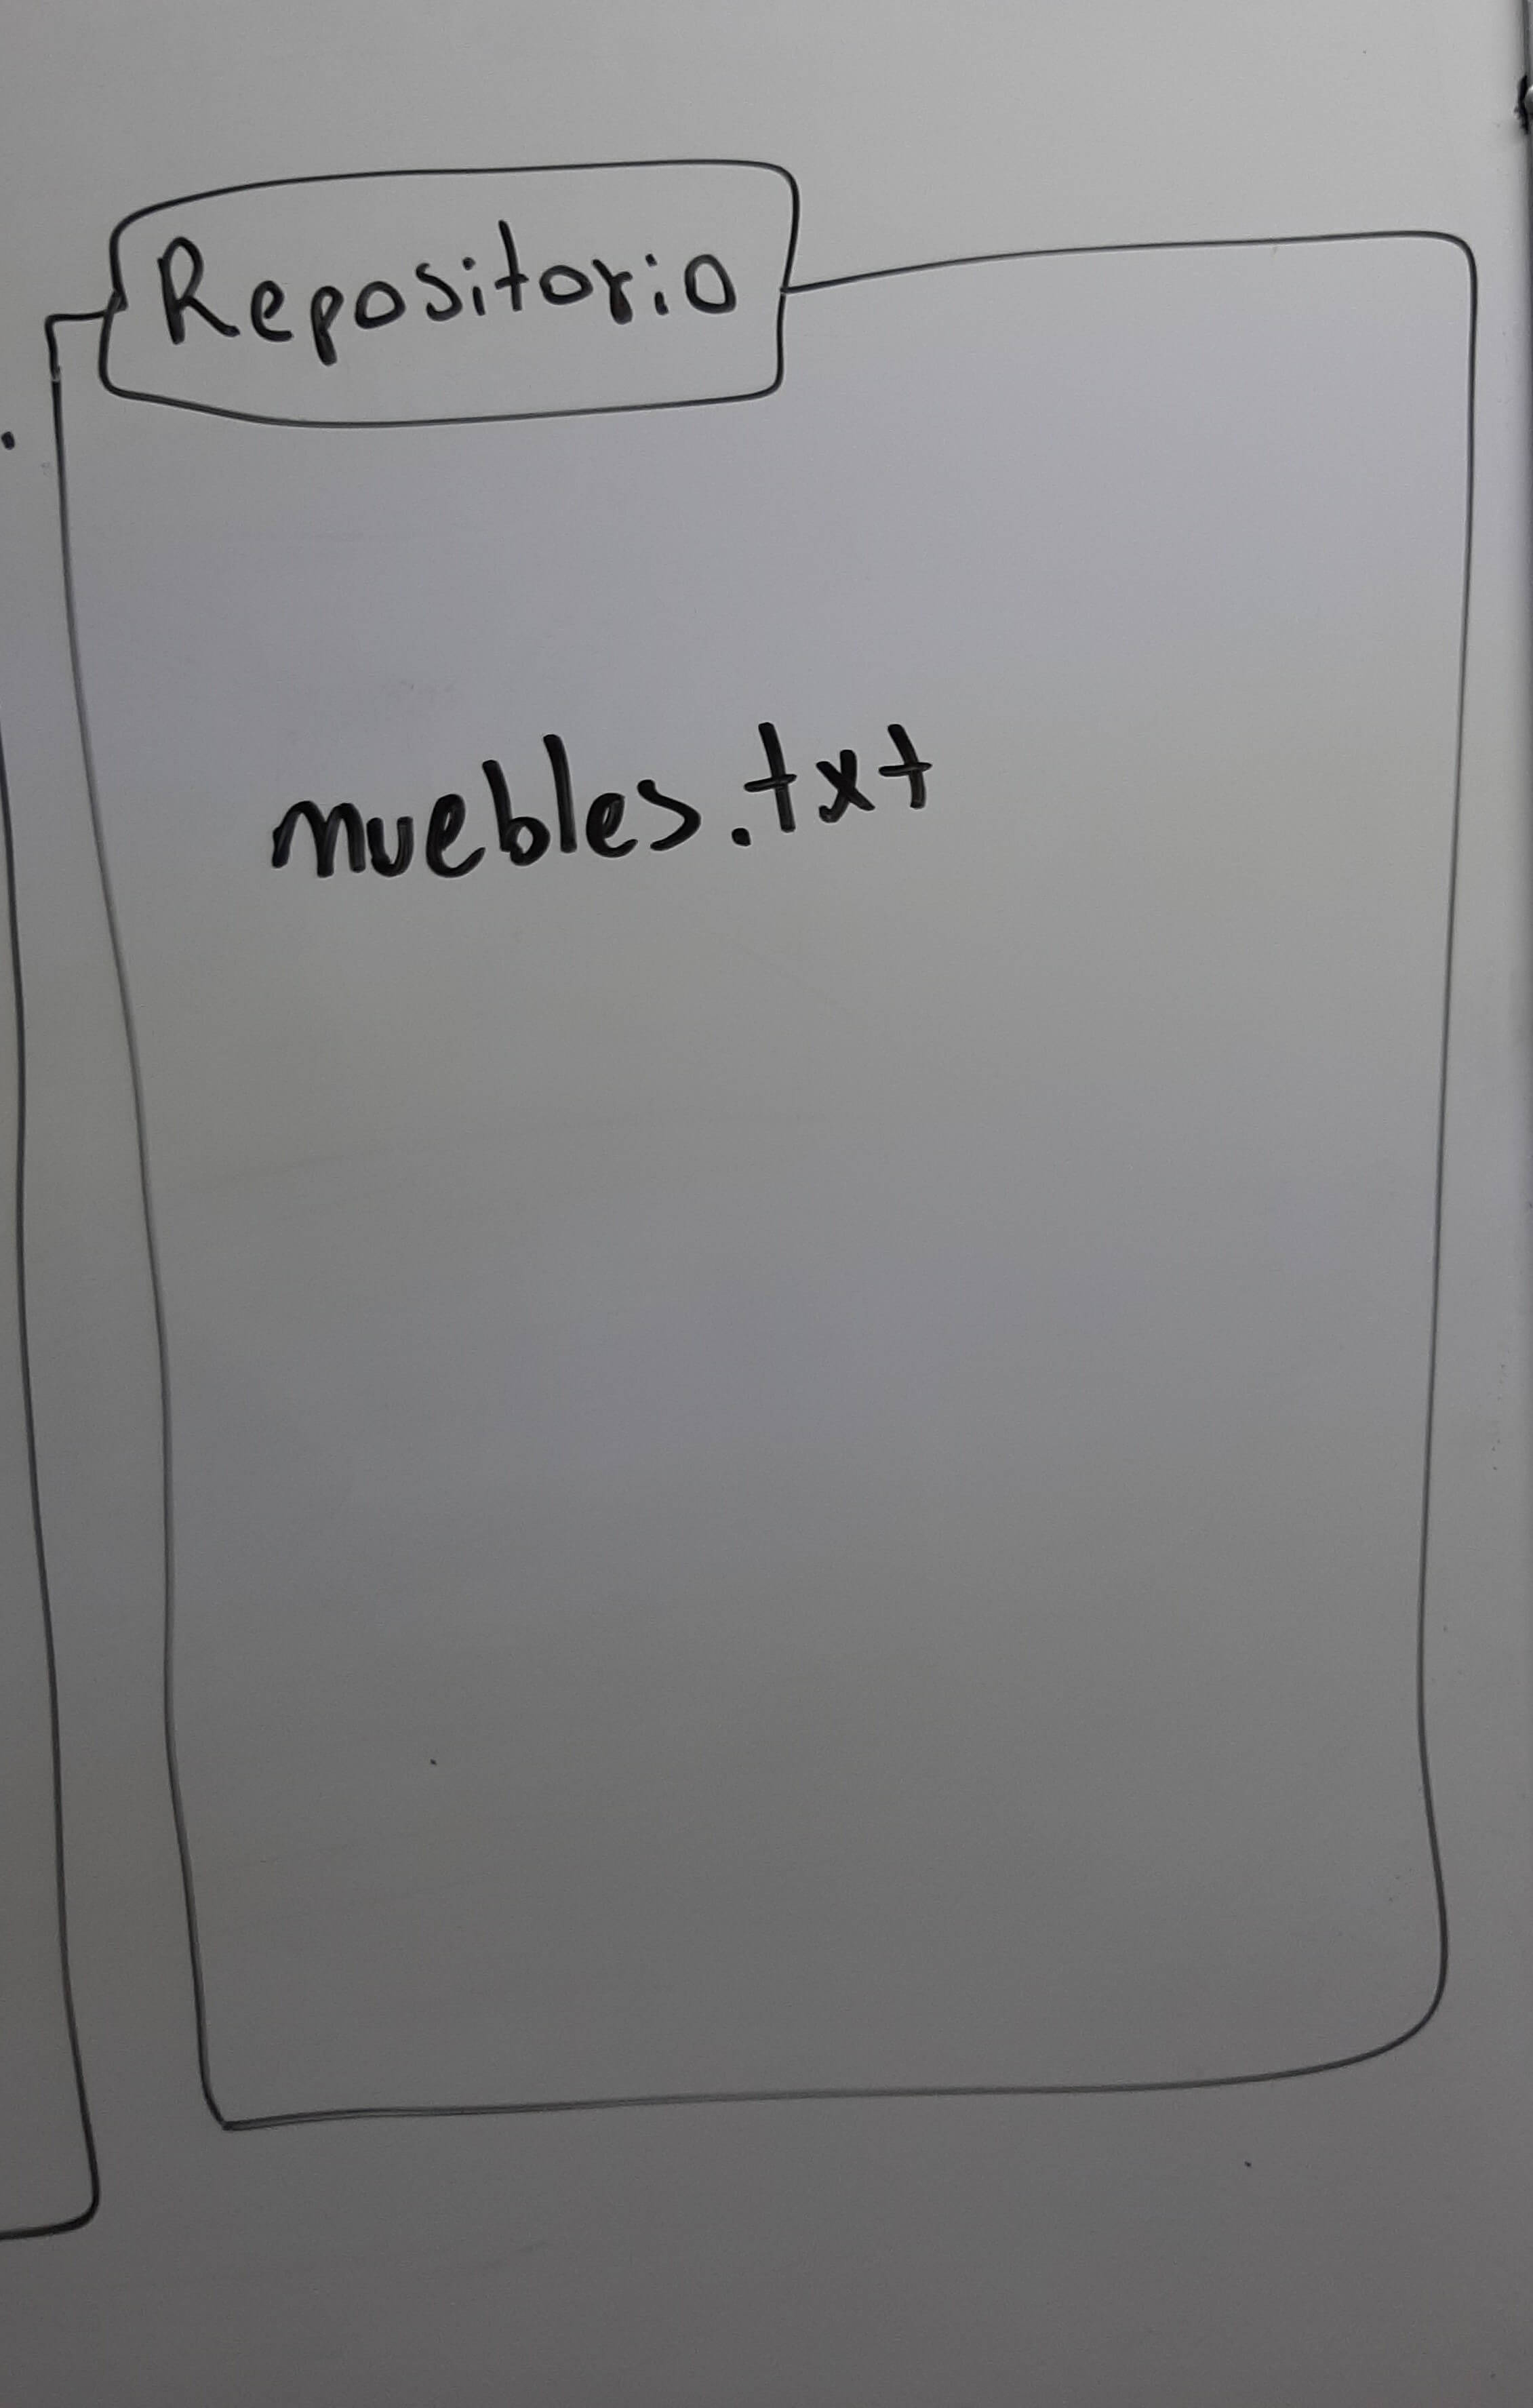 Repositorio
muebles.txt